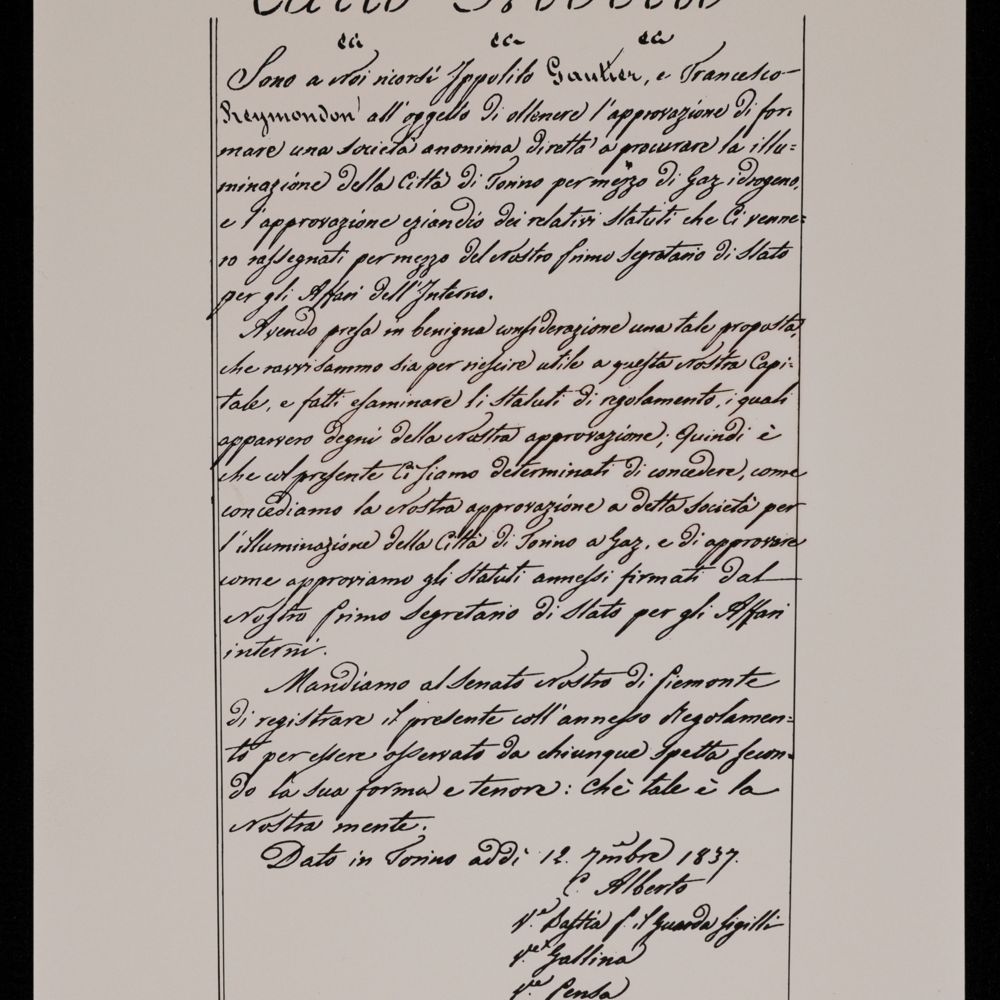 Carlo Alberto
ec. ec. ec.
Sono a Noi ricorsi Ippolito Gautier, e Francesco
Reymondon all'oggetto di ottenere l'approvazione di for=
mare una società anonima diretta a procurare la illu=
minazione della Città di Torino per mezzo di Gaz idrogeno,
e l'approvazione eziandio dei relativi Statuti che Ci venne=
ro rassegnati per mezzo del Nostro Primo Segretario di Stato
per gli Affari dell'Interno.
Avendo presa in benigna considerazione una tale proposta,
che ravvisammo sia per riescire utile a questa Nostra Capi=
tale, e fatti esaminare li Statuti di regolamento, i quali
apparvero degni della Nostra approvazione; Quindi è
che col presente Ci siamo determinati di concedere, come
concediamo la Nostra approvazione a detta società per
l'illuminazione della Città di Torino a Gaz, e di approvare
come approviamo gli Statuti annessi firmati dal
Nostro Primo Segretario di Stato per gli Affari
interni.
Mandiamo al Senato Nostro di Piemonte
di registrare il presente coll'annesso Regolamen=
to per essere osservato da chiunque spetta secon=
do la sua forma e tenore: Chè tale è la
Nostra mente.
Dato in Torino addì 12. 7mbre 1837.
C. Alberto
V.a Bastia p. il Guarda Sigilli
V.a Gallina
V.a Pensa